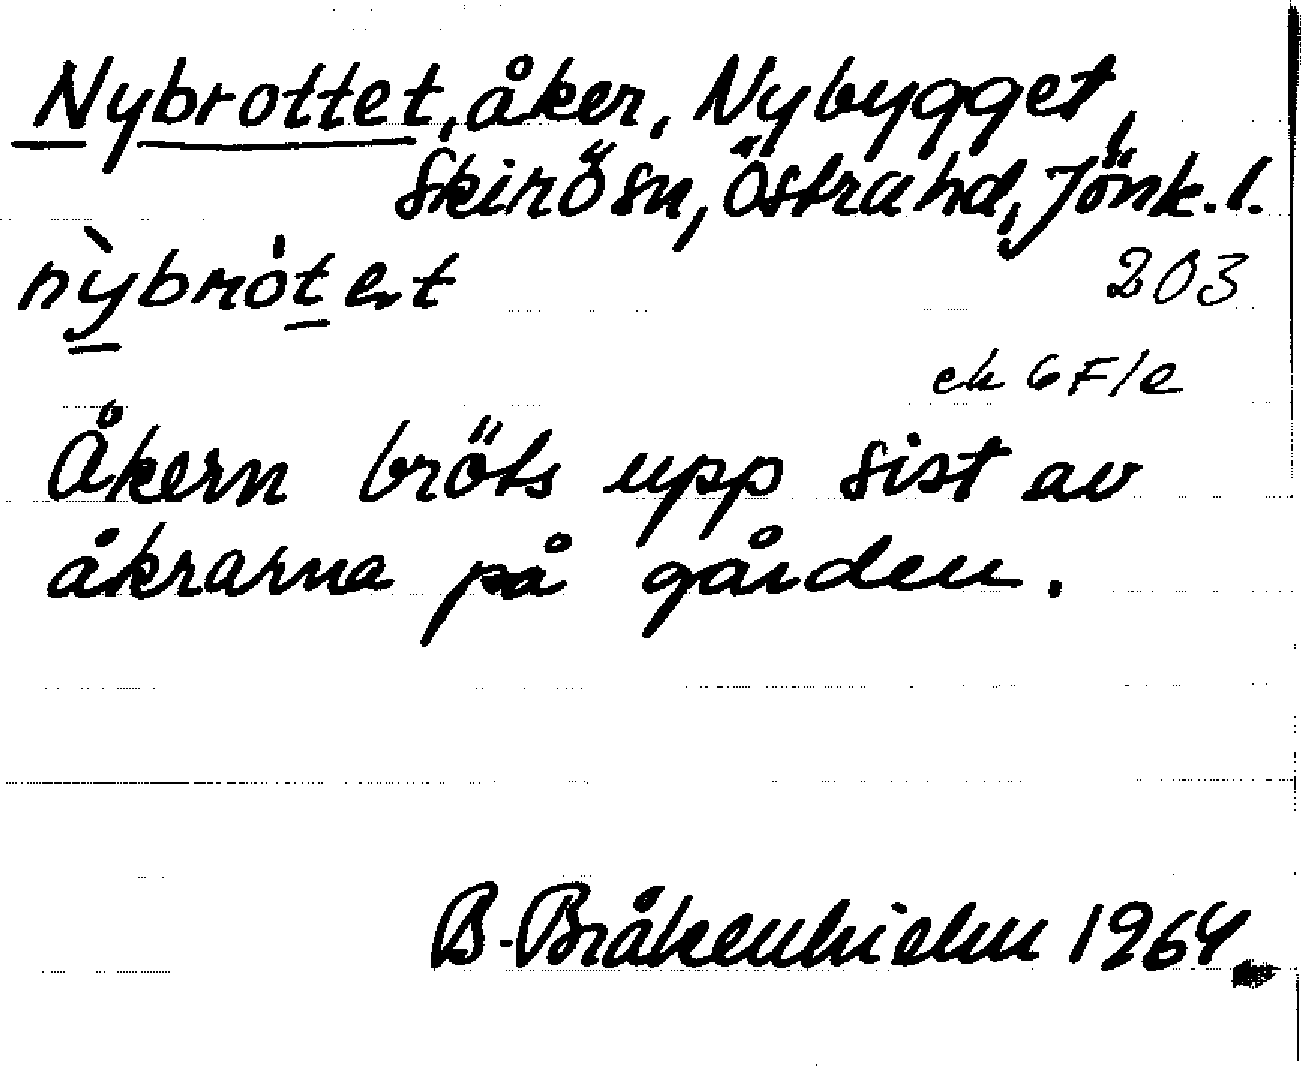 Nybrottet, åker, Nybygget,
Skirö sn, Östra hd, Jönk. l.
nỳbrȯtet
203
ek 6 F/e
Åkern bröts upp sist av
åkrarna på gården.
B-Bråkenhielm 1964